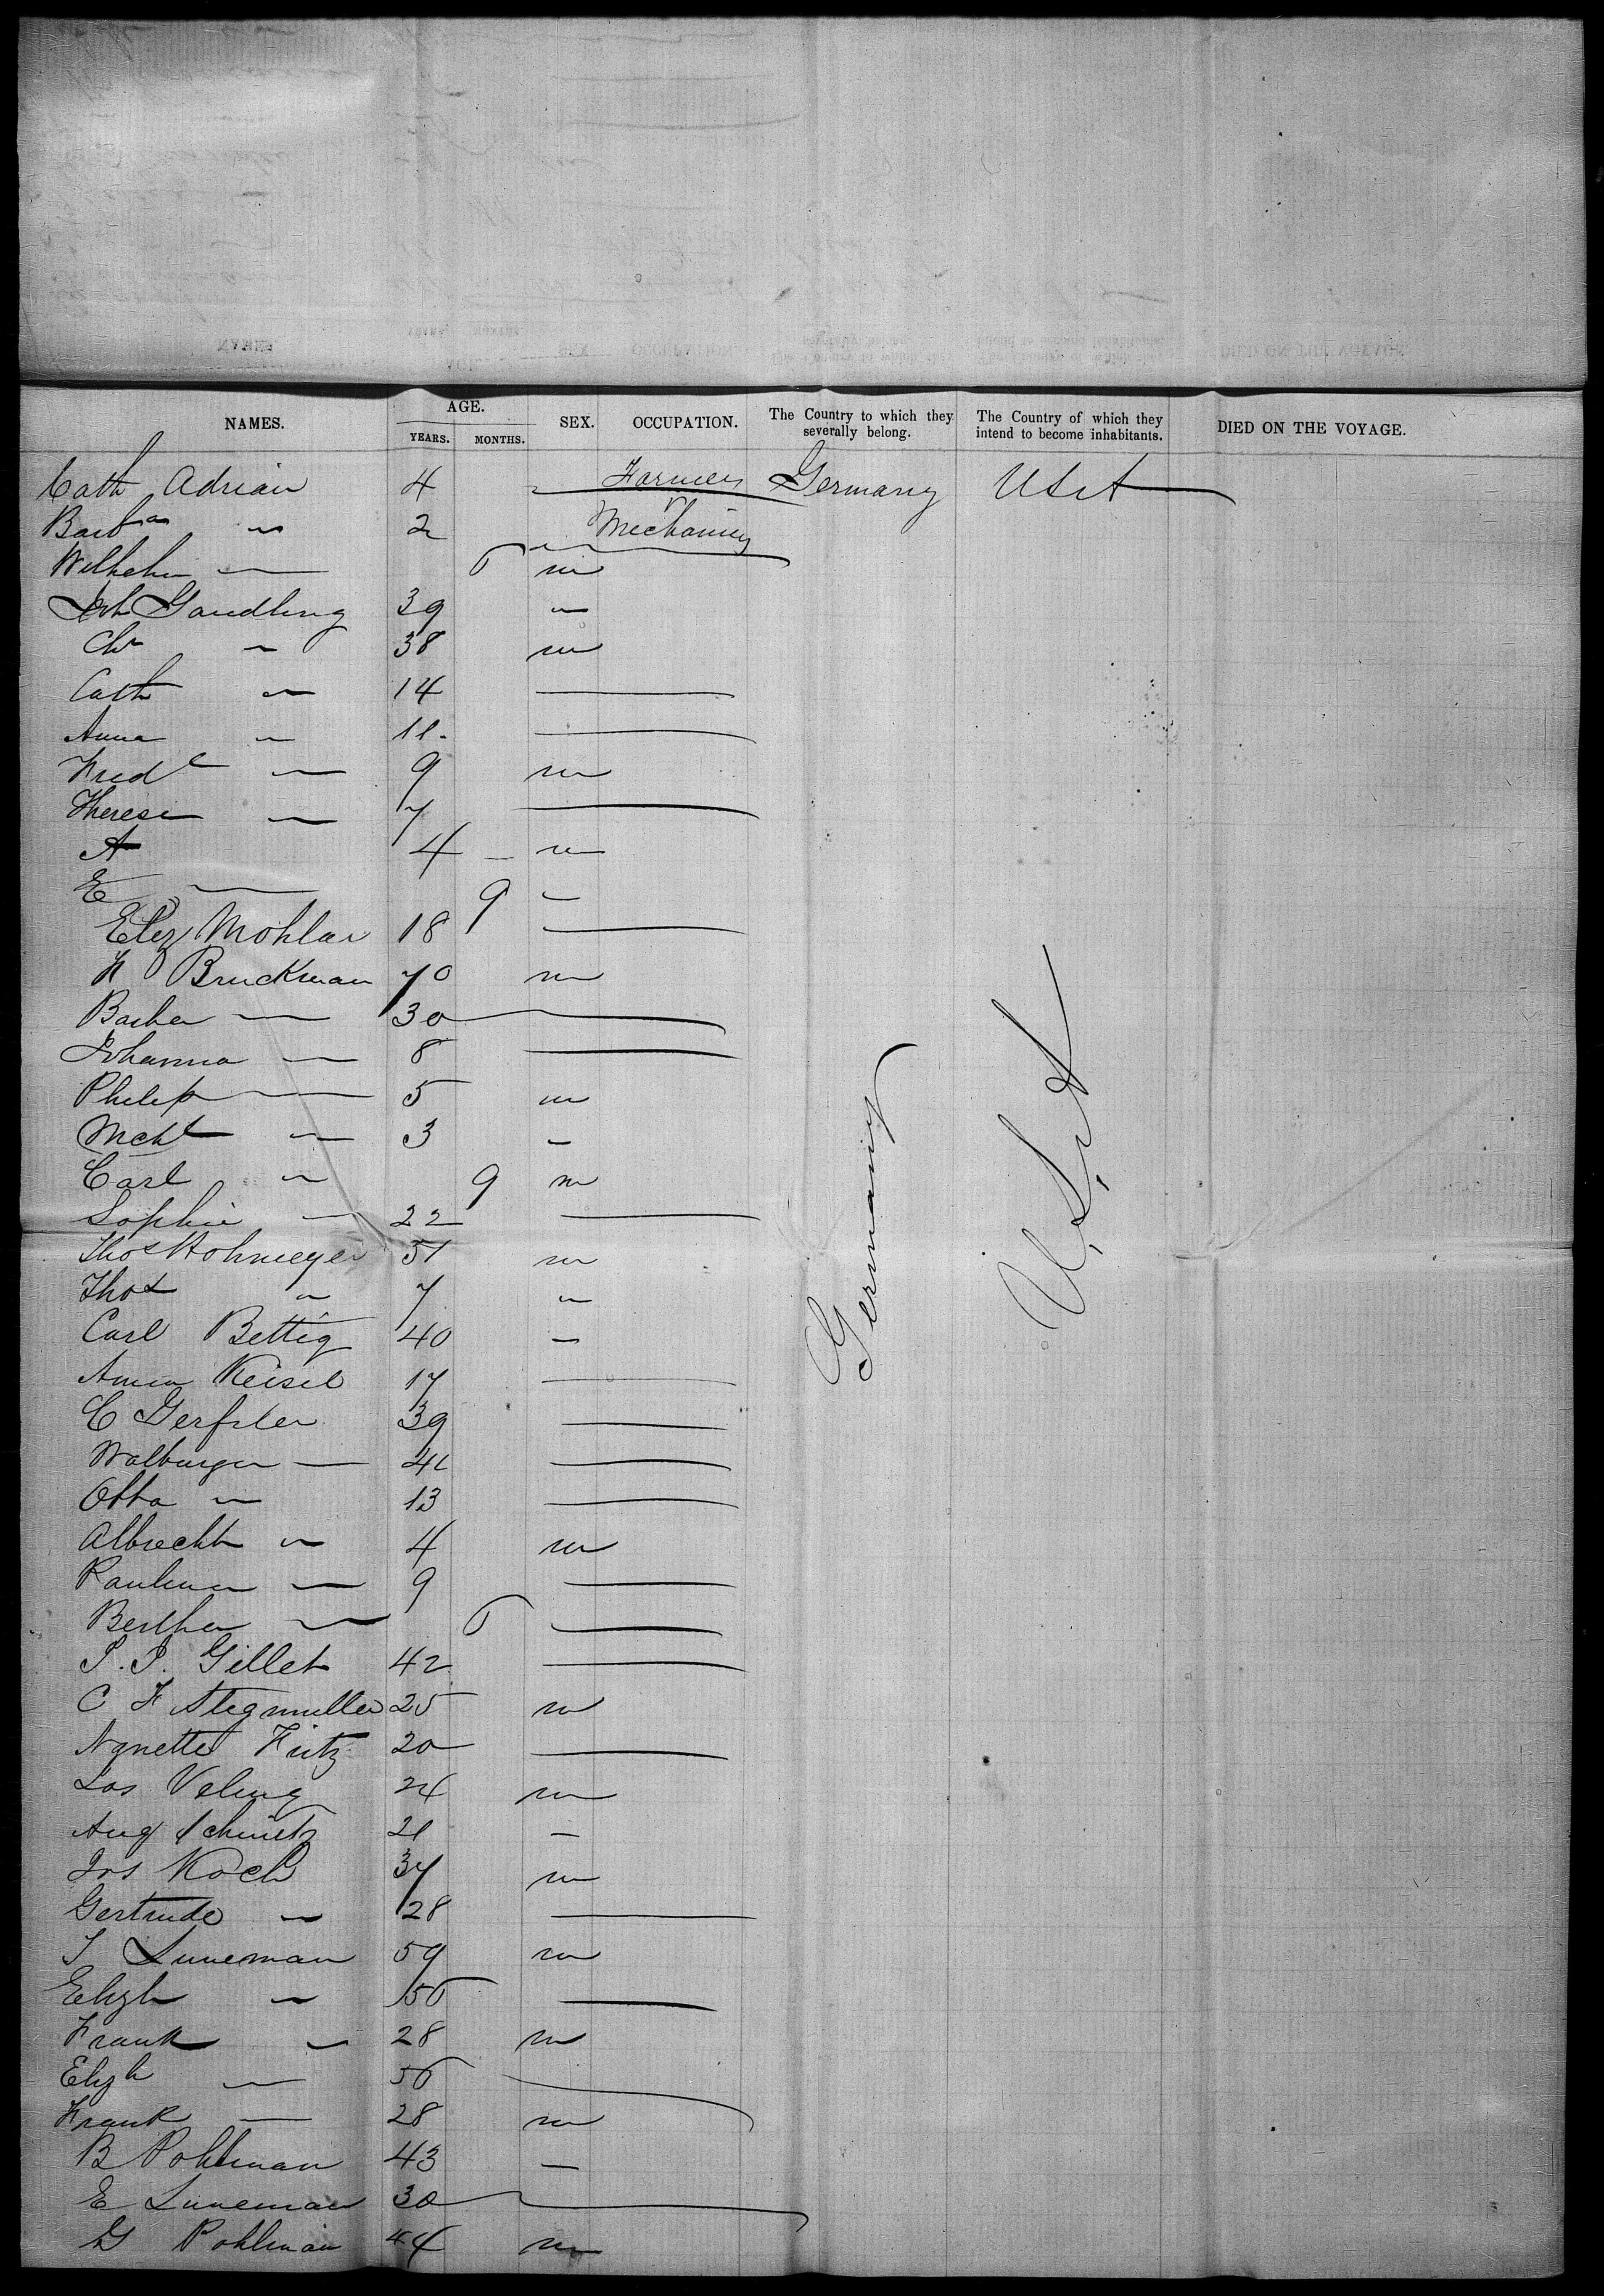 NAMES. AGE. YEARS. MONTHS. SEX. OCCUPATION. The Country to which they severally belong. The Country of which they intend to become inhabitants. DIED ON THE VOYAGE.
Cath Adrian 4 Farmers Germany USA
Barba " 2 Mechanics
Wilhelm — 6 m
Joh Gandling 39 "
Chr " 38 m
Cath " 14 —
Anna " 11 —
Fredk — 9 m
Therese — 7 —
A 4 — m
E — 9 —
Eliz Mohlar 18 —
F Bruckman 70 m
Barba — 30 —
Johanna — 8 —
Philip — 5 m
Michl — 3 —
Carl " 9 m
Sophie — 22 —
Thos Hohmeyer 51 m
Thos " 7 "
Carl Bettig 40 —
Anna Keisel 17 —
C Gerfsler 39 —
Walburga — 41 —
Otto " 13 —
Albrecht " 4 m
Paulina — 9 —
Bertha — 6 —
P. P. Gillet 42 —
C F Stegmuller 25 m
Nanette Fritz 20 —
Jos Veling 24 m
Aug Schmetz 21 —
Jos Koch 37 m
Gertrude " 28 —
J Luneman 59 m
Elizh " 56 —
Frank " 28 m
Elizh — 56 —
Frank — 28 m
B Pohlman 43 —
E Luneman 30 —
G Pohlman 44 m
Germany
U.S.A